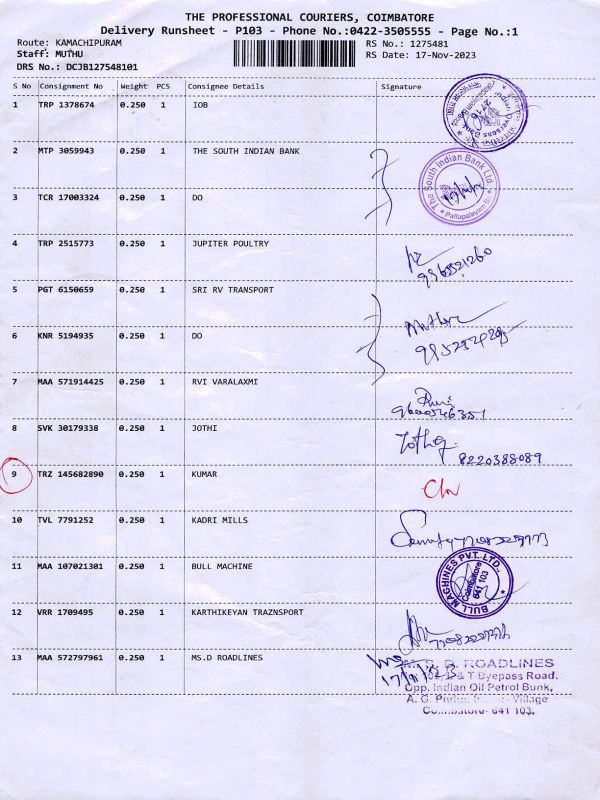 THE PROFESSIONAL COURIERS, COIMBATORE
Delivery Runsheet - P103 - Phone No.:0422-3505555 - Page No.:1
Route: KAMACHIPURAM RS No.: 1275481
Staff: MUTHU RS Date: 17-Nov-2023
DRS No.: DCJB127548101
S No Consignment No Weight PCS Consignee Details Signature
1 TRP 1378674 0.250 1 IOB
2 MTP 3059943 0.250 1 THE SOUTH INDIAN BANK
The South Indian Bank Ltd.
* Pallapalayam Br *
3 TCR 17003324 0.250 1 DO
4 TRP 2515773 0.250 1 JUPITER POULTRY
5 PGT 6150659 0.250 1 SRI RV TRANSPORT
6 KNR 5194935 0.250 1 DO
7 MAA 571914425 0.250 1 RVI VARALAXMI
8 SVK 30179338 0.250 1 JOTHI
Jothi
8220388089
9 TRZ 145682890 0.250 1 KUMAR
10 TVL 7791252 0.250 1 KADRI MILLS
11 MAA 107021301 0.250 1 BULL MACHINE
BULL MACHINES PVT. LTD.,
Coimbatore
641 103
12 VRR 1709495 0.250 1 KARTHIKEYAN TRAZNSPORT
13 MAA 572797961 0.250 1 MS.D ROADLINES
ROADLINES
& T Byepass Road,
Opp. Indian Oil Petrol Bunk,
A. G. Village
Coimbatore- 641 103.